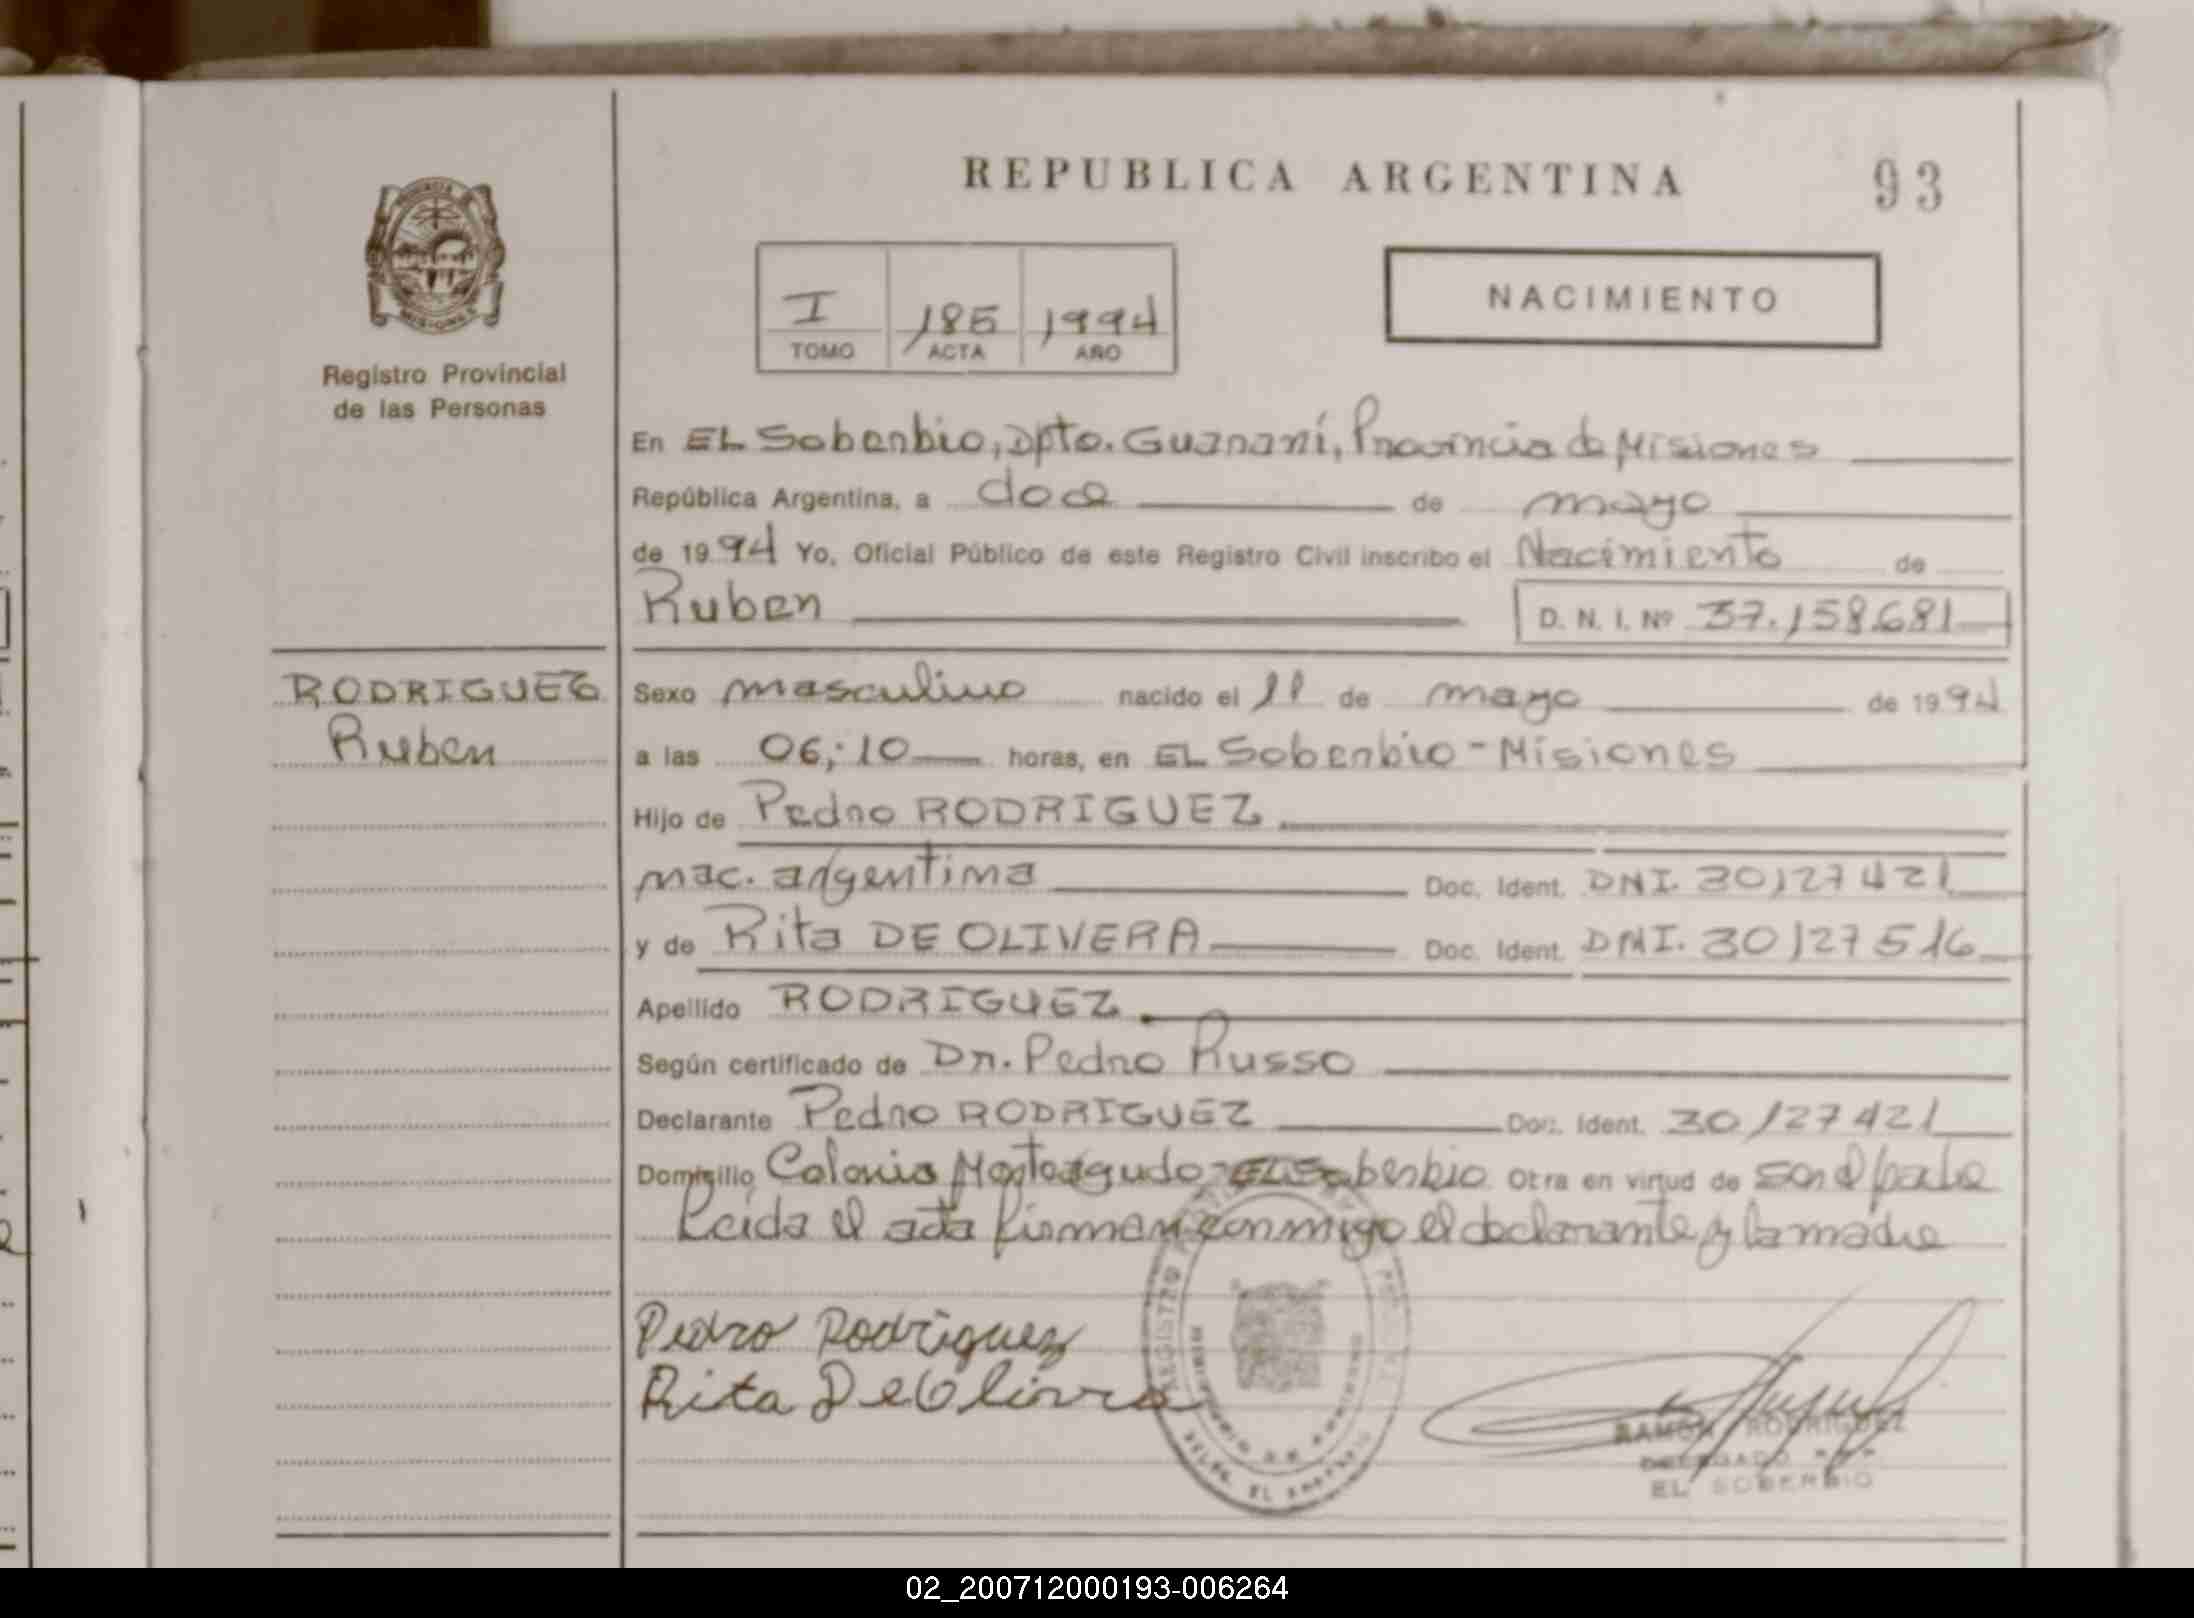 REPUBLICA ARGENTINA
93
PROVINCIA
MISIONES
Registro Provincial
de las Personas
I 185 1994
TOMO ACTA AÑO
NACIMIENTO
En EL Soberbio, Dpto. Guaraní, Provincia de Misiones
República Argentina, a doce de mayo
de 1994 Yo, Oficial Público de este Registro Civil inscribo el Nacimiento de
Ruben D. N. I. Nº 37.158.681
RODRIGUEZ
Ruben
Sexo masculino nacido el 11 de mayo de 1994
a las 06;10 horas, en EL Soberbio - Misiones
Hijo de Pedro RODRIGUEZ
nac. argentina Doc. Ident. DNI. 30127421
y de Rita DE OLIVERA Doc. Ident. DNI. 30127516
Apellido RODRIGUEZ
Según certificado de Dr. Pedro Russo
Declarante Pedro RODRIGUEZ Doc. Ident. 30127421
Domicilio Colonia Monteagudo - EL Soberbio. Otra en virtud de ser el padre
Leída el acta firman conmigo el declarante y la madre
Pedro Rodriguez
Rita De Olivera
REGISTRO
MINISTERIO DE GOBIERNO
DELEG. EL SOBERBIO
RAMON RODRIGUEZ
DELEGADO
EL SOBERBIO
02_200712000193-006264